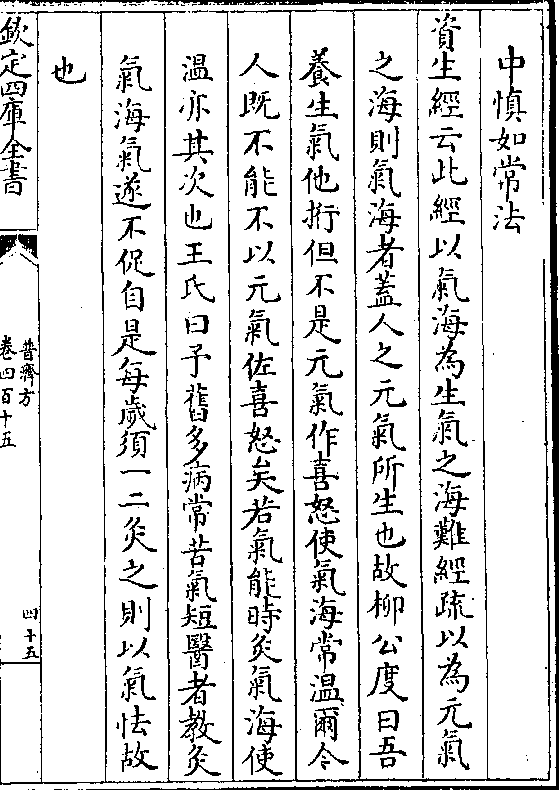 中慎如常法
資生經云此經以氣海為生氣之海難經疏以為元氣
之海則氣海者蓋人之元氣所生也故柳公度曰吾
養生氣他術但不是元氣作喜怒使氣海常温爾令
人既不能不以元氣佐喜怒矣若氣能時灸氣海使
温亦其次也王氏曰予舊多病常苦氣短醫者教灸
氣海氣遂不促自是每歲須一二灸之則以氣怯故
也
欽定四庫全書
普濟方
卷四百十五
四十五